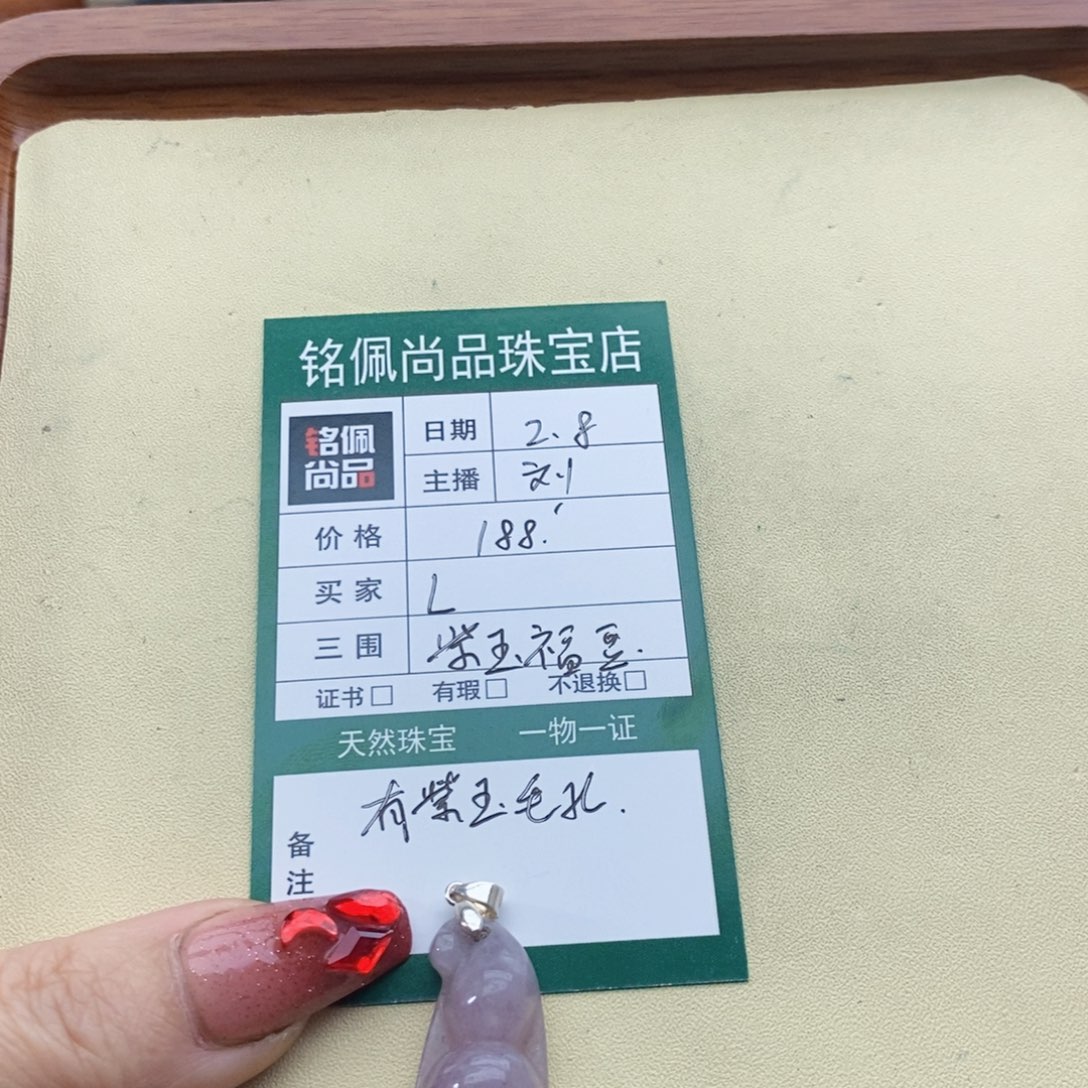 铭佩尚品珠宝店
铭佩
尚品
日期 2.8
主播 刘
价格 188.
买家 L
三围 紫玉福豆.
证书□ 有瑕□ 不退换□
天然珠宝 一物一证
有紫玉毛孔.
备注